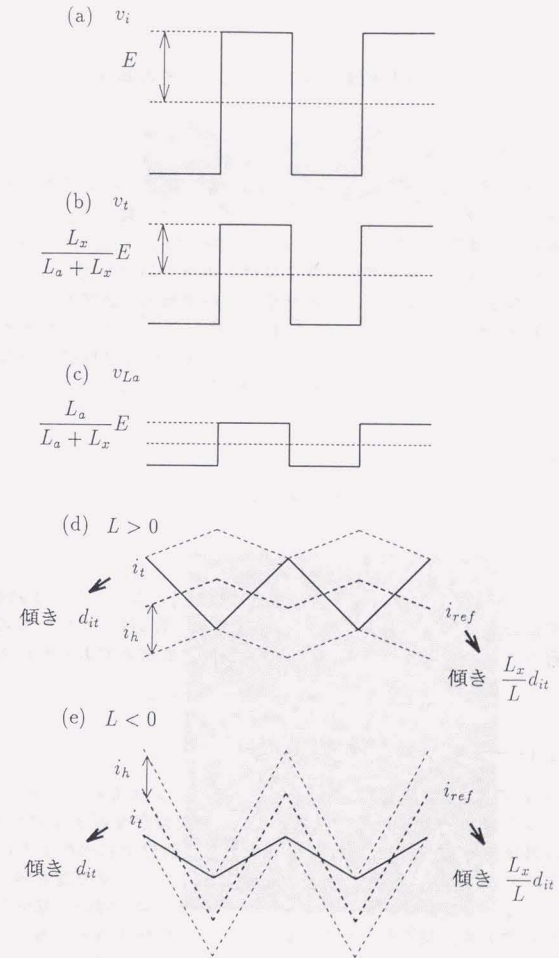 (a) v_i
E
(b) v_t
\frac{L_x}{L_a + L_x}E
(c) v_{La}
\frac{L_a}{L_a + L_x}E
(d) L > 0
i_t
傾き d_{it}
i_h
i_{ref}
傾き \frac{L_x}{L}d_{it}
(e) L < 0
i_h
i_t
傾き d_{it}
i_{ref}
傾き \frac{L_x}{L}d_{it}